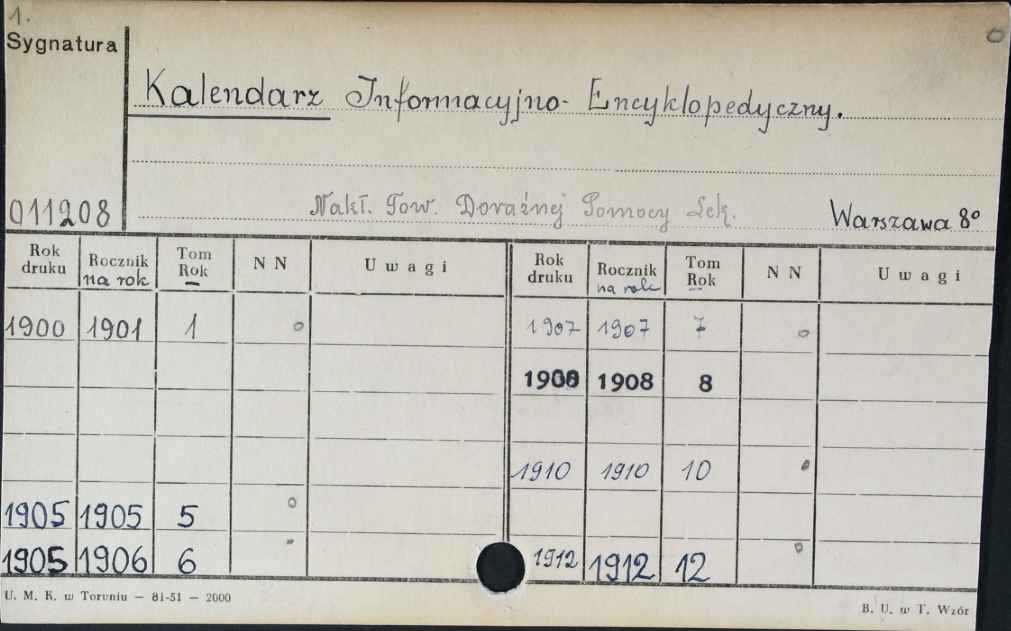 1.
Sygnatura
Kalendarz Informacyjno- Encyklopedyczny.
011208 Nakł. Tow. Doraźnej Pomocy Lek. Warszawa 8°
Rok druku Rocznik na rok Tom Rok N N Uwagi Rok druku Rocznik na rok Tom Rok N N Uwagi
1900 1901 1 o 1907 1907 7 o
1908 1908 8
1910 1910 10 o
1905 1905 5 o
1905 1906 6 1912 1912 12 o
U. M. K. w Toruniu — 81-51 — 2000 B. U. w T. Wzór